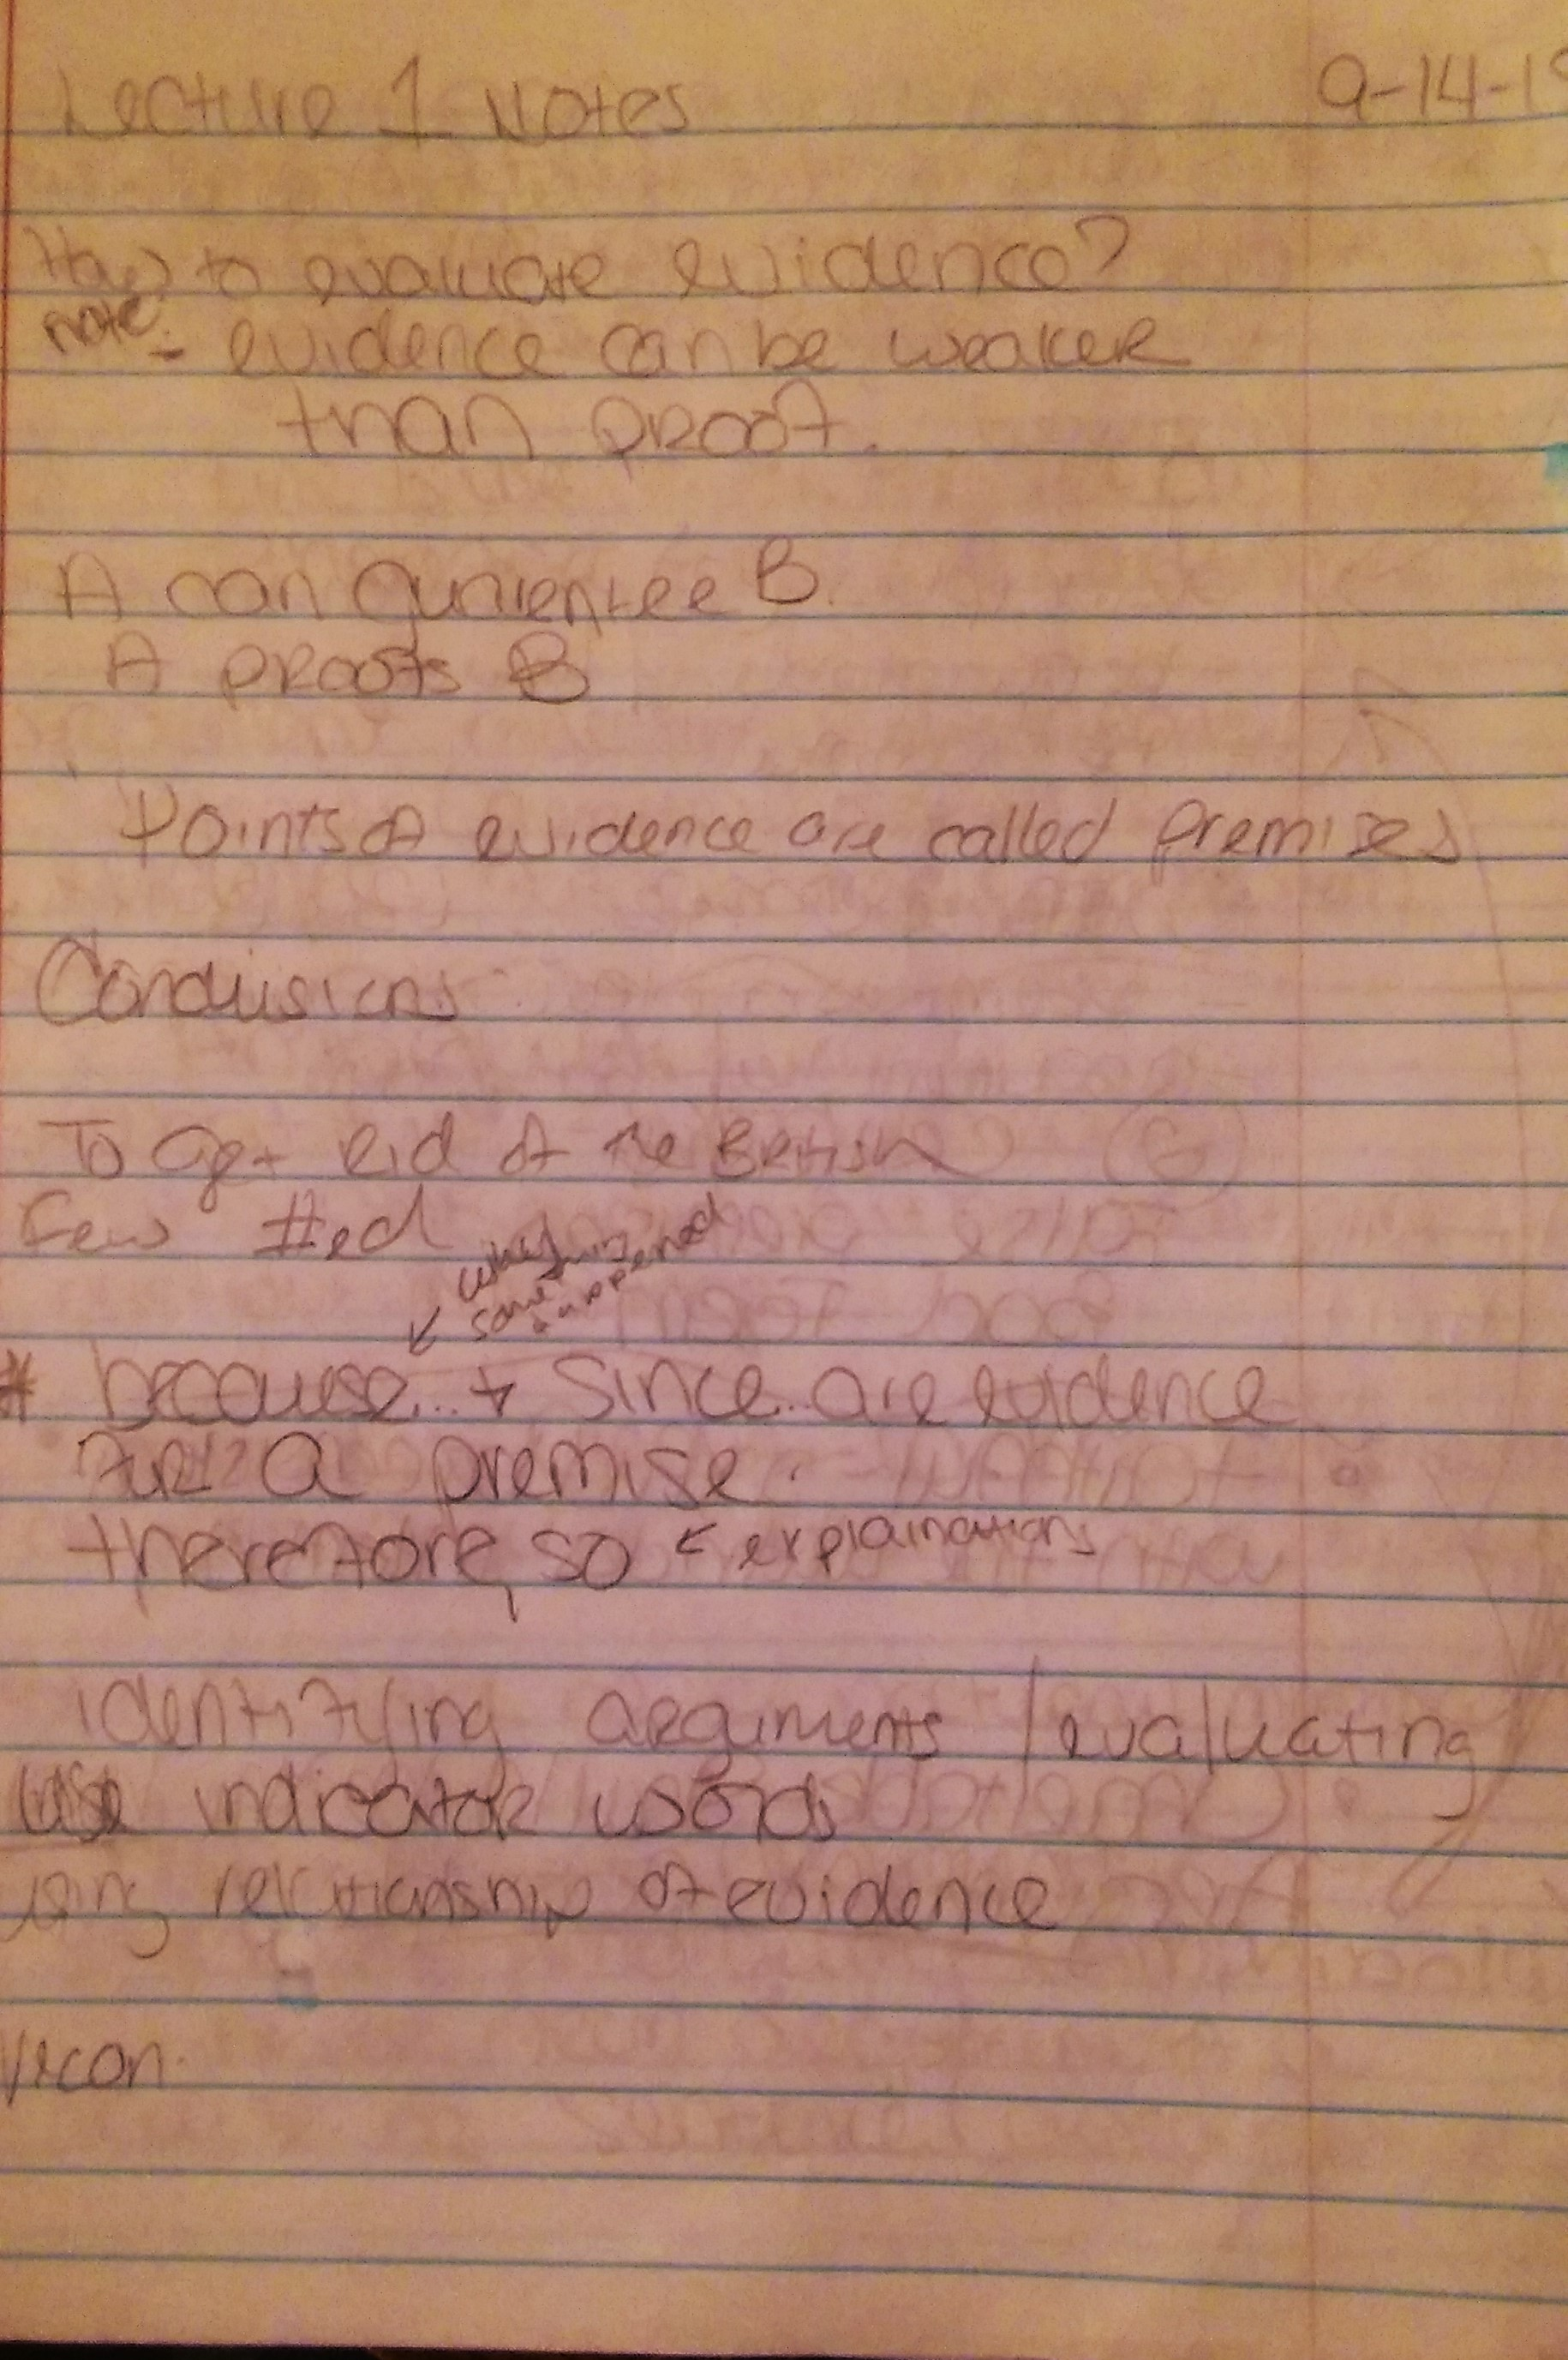 Lecture 1 Notes 9-14-1
How to evaluate evidence?
note: - evidence can be weaker
than proof.
A can gunrentee B.
A proofs B
Points of evidence are called premises
Conclusions
To get rid of the British
Few
why
something
happened
* because... + Since... are evidence
for a premise.
therefore, so ← explainations
identifying arguments / evaluating
use indicator words
using relationship of evidence